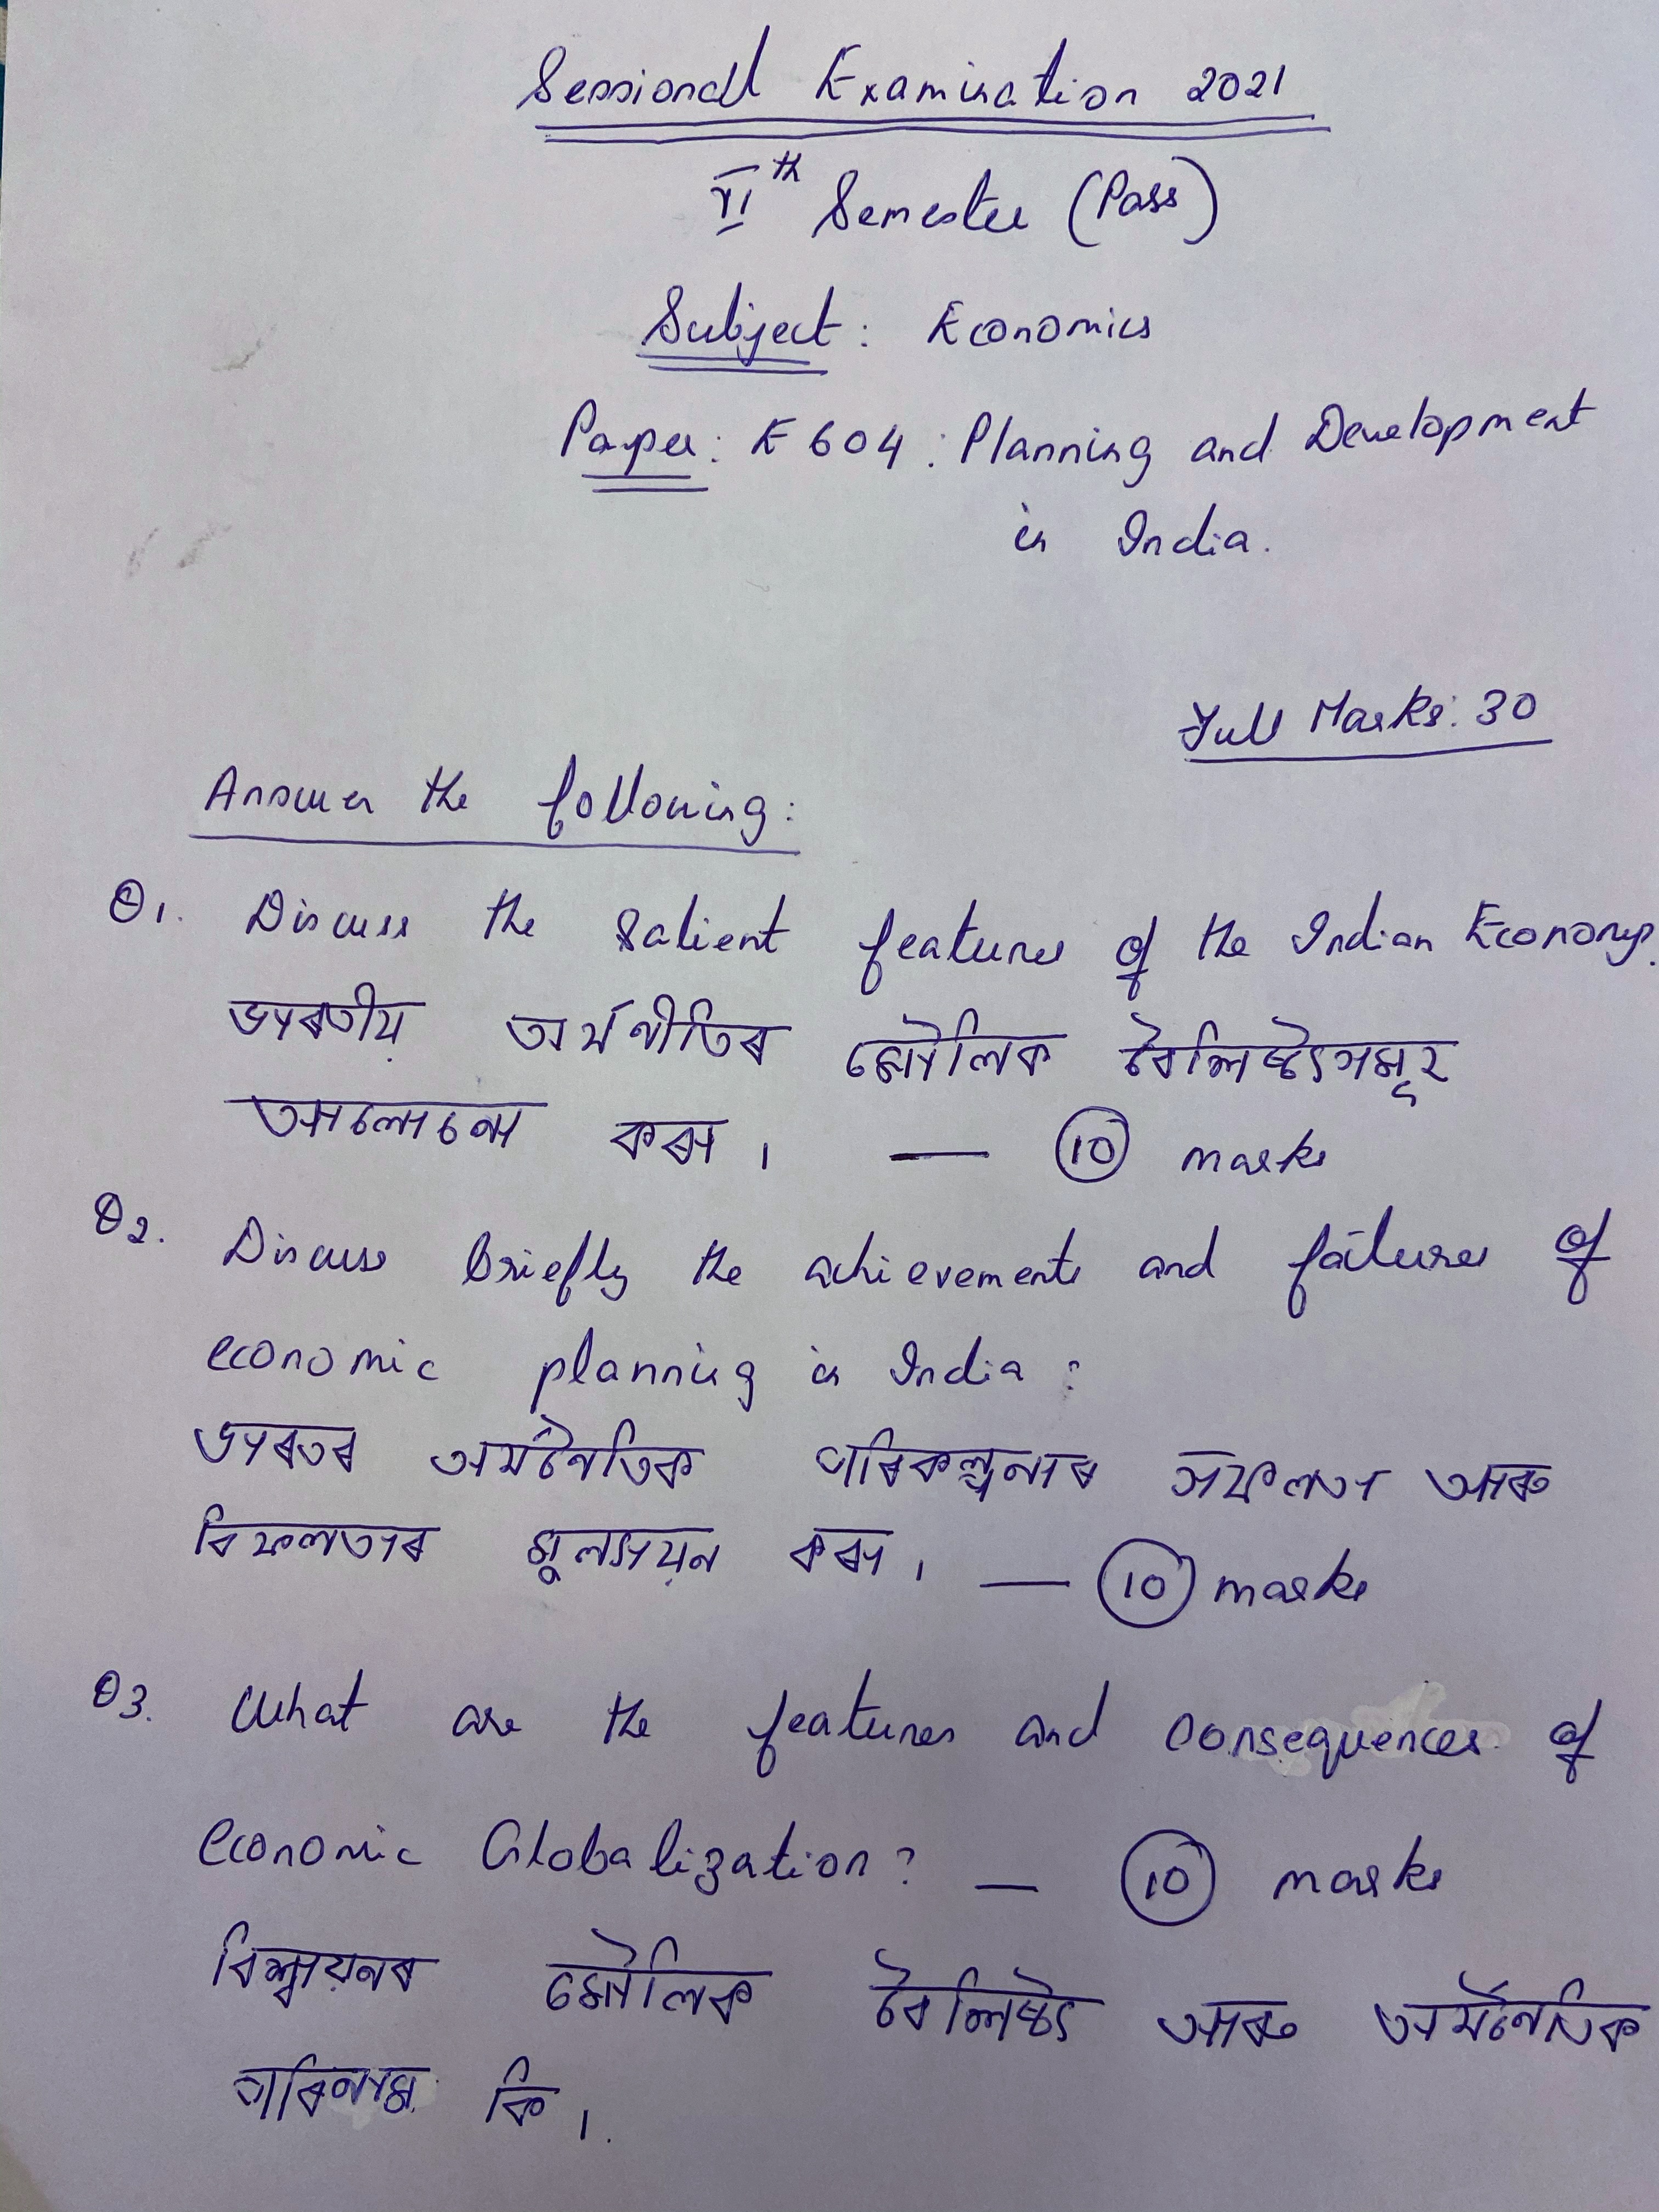 Sessional Examination 2021
VIth Semester (Pass)
Subject: Economics
Paper: E 604: Planning and Development
in India.
Full Marks: 30
Answer the following:
Q1. Discuss the salient features of the Indian Economy.
ভাৰতীয় অৰ্থনীতিৰ মৌলিক বৈশিষ্ট্যসমূহ
আলোচনা কৰা । — 10 marks
Q2. Discuss briefly the achievements and failures of
economic planning in India:
ভাৰতৰ অৰ্থনৈতিক পৰিকল্পনাৰ সফলতা আৰু
বিফলতাৰ মূল্যায়ন কৰা । — 10 marks
Q3. What are the features and consequences of
economic Globalization? — 10 marks
বিশ্বায়নৰ মৌলিক বৈশিষ্ট্য আৰু অৰ্থনৈতিক
পৰিনাম কি ।